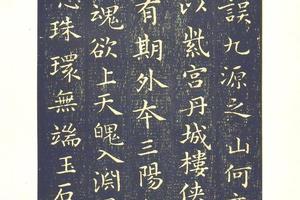 誤九源之山何
以紫宫丹城樓俠
有期外本三陽
魂欲上天魄入淵
珠環無端玉石